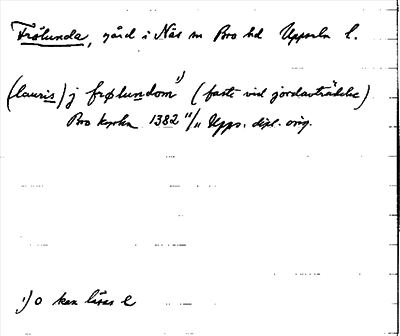 Frölunda, gård i Näs sn Bro hd Uppsala l.
(lauris) j frølundom ¹) (faste vid jordavträdelse)
Bro kyrka 1382 11/11 Upps. dipl. orig.
¹) o kan läsas e